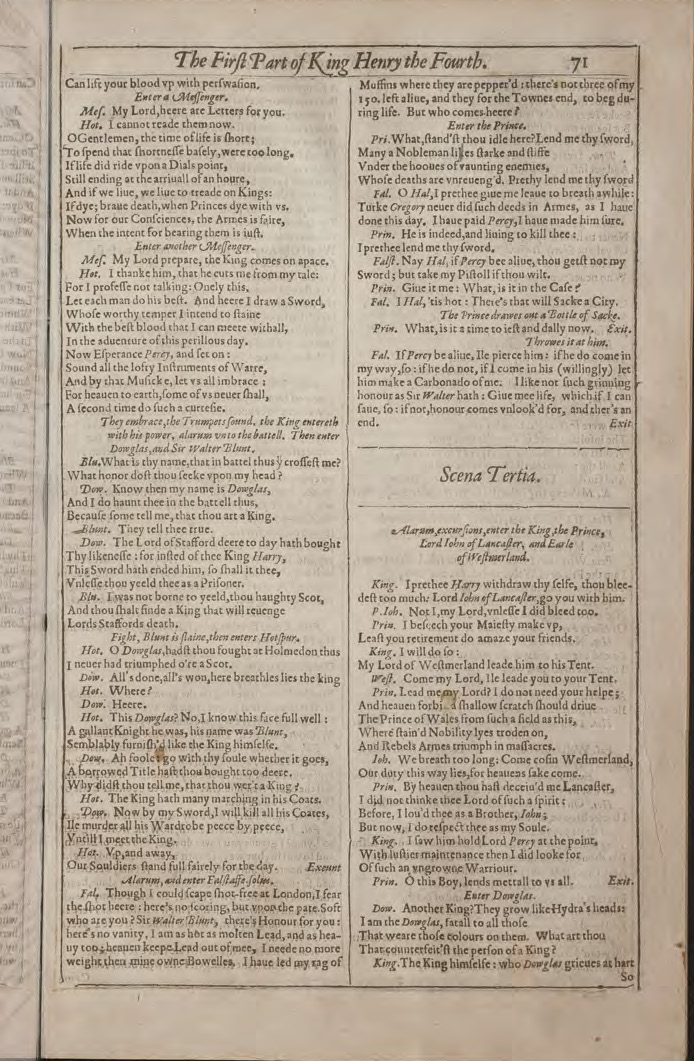 The First Part of King Henry the Fourth. 71
Can lift your blood vp with perswasion.
Enter a Messenger.
Mes. My Lord, heere are Letters for you.
Hot. I cannot reade them now.
O Gentlemen, the time of life is short;
To spend that shortnesse basely, were too long.
If life did ride vpon a Dials point,
Still ending at the arriuall of an houre,
And if we liue, we liue to treade on Kings:
If dye; braue death, when Princes dye with vs.
Now for our Consciences, the Armes is faire,
When the intent for bearing them is iust.
Enter another Messenger.
Mes. My Lord prepare, the King comes on apace.
Hot. I thanke him, that he cuts me from my tale:
For I professe not talking: Onely this,
Let each man do his best. And heere I draw a Sword,
Whose worthy temper I intend to staine
With the best blood that I can meete withall,
In the aduenture of this perillous day.
Now Esperance Percy, and set on:
Sound all the lofty Instruments of Warre,
And by that Musicke, let vs all imbrace:
For heauen to earth, some of vs neuer shall,
A second time do such a curtesie.
They embrace, the Trumpets sound, the King entereth
with his power, alarum vnto the battell. Then enter
Dowglas, and Sir Walter Blunt.
Blu. What is thy name, that in battel thus ÿ crossest me?
What honor dost thou seeke vpon my head?
Dow. Know then my name is Dowglas,
And I do haunt thee in the battell thus,
Because some tell me, that thou art a King.
Blunt. They tell thee true.
Dow. The Lord of Stafford deere to day hath bought
Thy likenesse: for insted of thee King Harry,
This Sword hath ended him, so shall it thee,
Vnlesse thou yeeld thee as a Prisoner.
Blu. I was not borne to yeeld, thou haughty Scot,
And thou shalt finde a King that will reuenge
Lords Staffords death.
Fight, Blunt is slaine, then enters Hotspur.
Hot. O Dowglas, hadst thou fought at Holmedon thus
I neuer had triumphed o're a Scot.
Dow. All's done, all's won, here breathles lies the king
Hot. Where?
Dow. Heere.
Hot. This Dowglas? No, I know this face full well:
A gallant Knight he was, his name was Blunt,
Semblably furnish'd like the King himselfe.
Dow. Ah foole: go with thy soule whether it goes,
A borrowed Title hast thou bought too deere.
Why didst thou tell me, that thou wer't a King?
Hot. The King hath many marching in his Coats.
Dow. Now by my Sword, I will kill all his Coates,
Ile murder all his Wardrobe peece by peece,
Vntill I meet the King.
Hot. Vp, and away,
Our Souldiers stand full fairely for the day. Exeunt
Alarum, and enter Falstaffe solus.
Fal. Though I could scape shot-free at London, I fear
the shot heere: here's no scoring, but vpon the pate. Soft
who are you? Sir Walter Blunt, there's Honour for you:
here's no vanity, I am as hot as molten Lead, and as hea-
uy too; heauen keepe Lead out of mee, I neede no more
weight then mine owne Bowelles. I haue led my rag of
Muffins where they are pepper'd: there's not three of my
150. left aliue, and they for the Townes end, to beg du-
ring life. But who comes heere?
Enter the Prince.
Pri. What, stand'st thou idle here? Lend me thy sword,
Many a Nobleman likes starke and stiffe
Vnder the hooues of vaunting enemies,
Whose deaths are vnreueng'd. Prethy lend me thy sword
Fal. O Hal, I prethee giue me leaue to breath awhile:
Turke Gregory neuer did such deeds in Armes, as I haue
done this day. I haue paid Percy, I haue made him sure.
Prin. He is indeed, and liuing to kill thee:
I prethee lend me thy sword.
Falst. Nay Hal, if Percy bee aliue, thou getst not my
Sword; but take my Pistoll if thou wilt.
Prin. Giue it me: What, is it in the Case?
Fal. I Hal, 'tis hot: There's that will Sacke a City.
The Prince drawes out a Bottle of Sacke.
Prin. What, is it a time to iest and dally now. Exit.
Throwes it at him.
Fal. If Percy be aliue, Ile pierce him: if he do come in
my way, so: if he do not, if I come in his (willingly) let
him make a Carbonado of me. I like not such grinning
honour as Sir Walter hath: Giue mee life, which if I can
saue, so: if not, honour comes vnlook'd for, and ther's an
end. Exit
Scena Tertia.
Alarum, excursions, enter the King, the Prince,
Lord Iohn of Lancaster, and Earle
of Westmerland.
King. I prethee Harry withdraw thy selfe, thou blee-
dest too much: Lord Iohn of Lancaster, go you with him.
P. Ioh. Not I, my Lord, vnlesse I did bleed too.
Prin. I beseech your Maiesty make vp,
Least you retirement do amaze your friends.
King. I will do so:
My Lord of Westmerland leade him to his Tent.
West. Come my Lord, Ile leade you to your Tent.
Prin. Lead me my Lord? I do not need your helpe;
And heauen forbid a shallow scratch should driue
The Prince of Wales from such a field as this,
Where stain'd Nobility lyes troden on,
And Rebels Armes triumph in massacres.
Ioh. We breath too long: Come cosin Westmerland,
Our duty this way lies, for heauens sake come.
Prin. By heauen thou hast deceiu'd me Lancaster,
I did not thinke thee Lord of such a spirit:
Before, I lou'd thee as a Brother, Iohn;
But now, I do respect thee as my Soule.
King. I saw him hold Lord Percy at the point,
With lustier maintenance then I did looke for
Of such an vngrowne Warriour.
Prin. O this Boy, lends mettall to vs all. Exit.
Enter Dowglas.
Dow. Another King? They grow like Hydra's heads:
I am the Dowglas, fatall to all those
That weare those colours on them. What art thou
That counterfeit'st the person of a King?
King. The King himselfe: who Dowglas grieues at hart
So